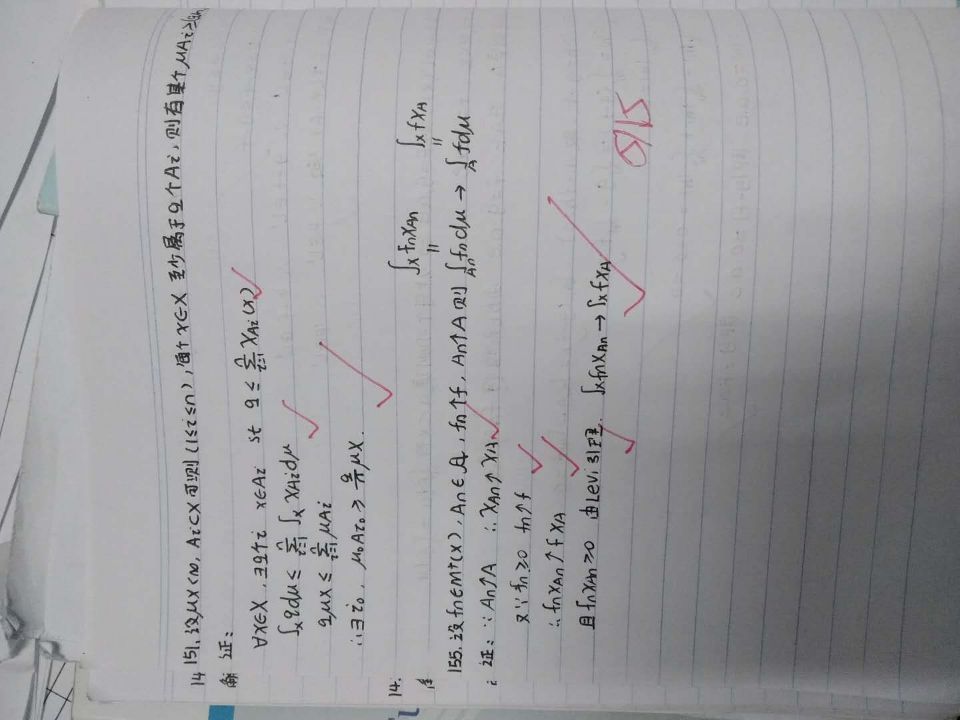 14 151. 设μX<∞, Ai⊂X可测(1≤i≤n), 每个x∈X 至少属于q个Ai, 则有某个μAi≥
解 证:
∀x∈X ∃q个i x∈Ai st q ≤ Σ_{i=1}^{n} χAi(x)
∫_X q dμ ≤ Σ_{i=1}^{n} ∫_X χAi dμ
qμX ≤ Σ_{i=1}^{n} μAi
∴∃ i₀, μAi₀ ≥ q/n μX.
14.
∫_X fnχAn ∫_X fχA
155. 设fn∈M⁺(X), An∈A, fn↑f, An↑A 则 ∫_{An} fn dμ → ∫_A f dμ
证: ∵An↑A ∴χAn↑χA
又∵fn≥0 fn↑f
∴fnχAn↑fχA
且fnχAn≥0 由Levi引理 ∫_X fnχAn → ∫_X fχA